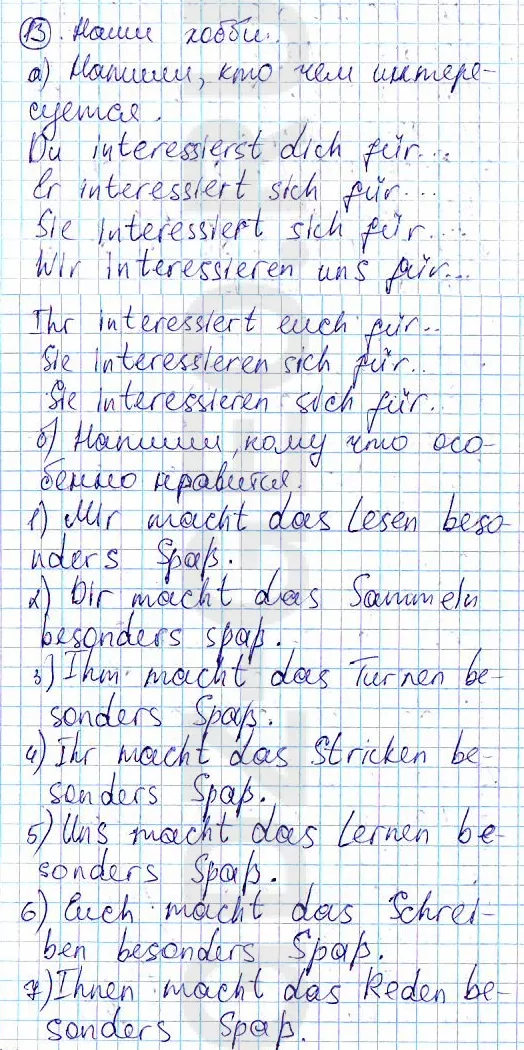 13. Наши хобби.
а) Напиши, кто чем интере-
суется.
Du interessierst dich für...
Er interessiert sich für...
Sie interessiert sich für....
Wir interessieren uns für...
Ihr interessiert euch für..
Sie interessieren sich für..
Sie interessieren sich für.
б) Напиши, кому что осо-
бенно нравится.
1) Mir macht das Lesen beso-
nders Spaß.
2) Dir macht das Sammeln
besonders spaß.
3) Ihm macht das Turnen be-
sonders Spaß.
4) Ihr macht das Stricken be-
sonders Spaß.
5) Uns macht das Lernen be-
sonders Spaß.
6) Euch macht das Schrei-
ben besonders Spaß.
7) Ihnen macht das Reden be-
sonders Spaß.